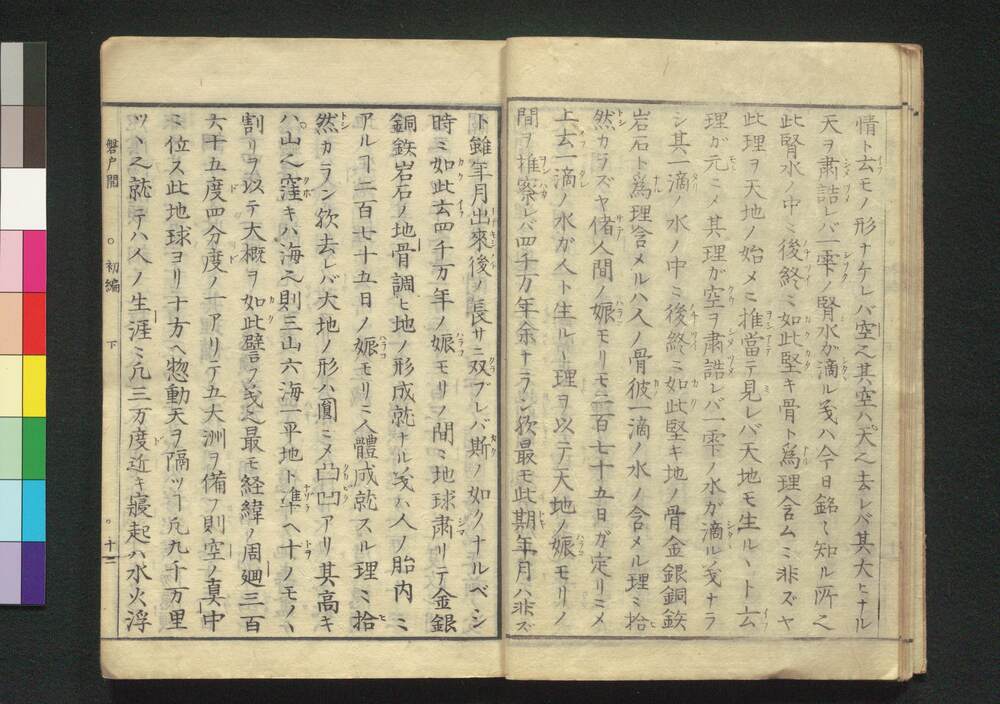 情ト云モノ形ナケレバ空之其空ハ天之去レバ其大ヒナル
天ヲ肅詰レバ一雫ノ腎水ガ滴ル㦮ハ今日銘ミ知ル所之
此腎水ノ中ミ後終ミ如此堅キ骨ト爲理含ムミ非ズヤ
此理ヲ天地ノ始メミ推當テ見レバ天地モ生ルヽト云
理ガ元ミメ其理ガ空ヲ肅詰レバ一雫ノ水ガ滴ル㦮ナラ
ン其一滴ノ水ノ中ミ後終ミ如此堅キ地ノ骨金銀銅鉄
岩石ト爲理含メルハ人ノ骨彼一滴ノ水ノ含メル理ミ拾
然カラズヤ偖人間ノ娠モリモ二百七十五日ガ定リミメ
上云一滴ノ水ガ人ト生ルヽ理ヲ以テ天地ノ娠モリノ
間ヲ推察レバ四千万年余ナラン欤最モ此期年月ハ非ズ
ト雖年月出來後ノ長サニ双ブレバ斯ノ如クナルベシ
時ミ如此云四千万年ノ娠モリノ間ミ地球肅リテ金銀
銅鉄岩石ノ地骨調ヒ地ノ形成就ナル㦮ハ人ノ胎内ミ
アルヿ二百七十五日ノ娠モリミ人體成就スル理ミ拾
然カラン欤去レバ大地ノ形ハ圓ミメ凸凹アリ其高キ
ハ山之窪キハ海之則三山六海一平地ト準ヘ十ノモノヽ
割リヲ以テ大概ヲ如此譬フ㦮之最モ経緯ノ周廻三百
六十五度四分度ノ一アリテ五大洲ヲ備フ則空ノ真中
ミ位ス此地球ヨリ十方ヘ惣動天ヲ隔ツヿ凡九千万里
ツヽ之就テハ人ノ生涯ミ凡三万度近キ寢起ハ水火浮
磐戸開 ○ 初編 下 ○ 十二